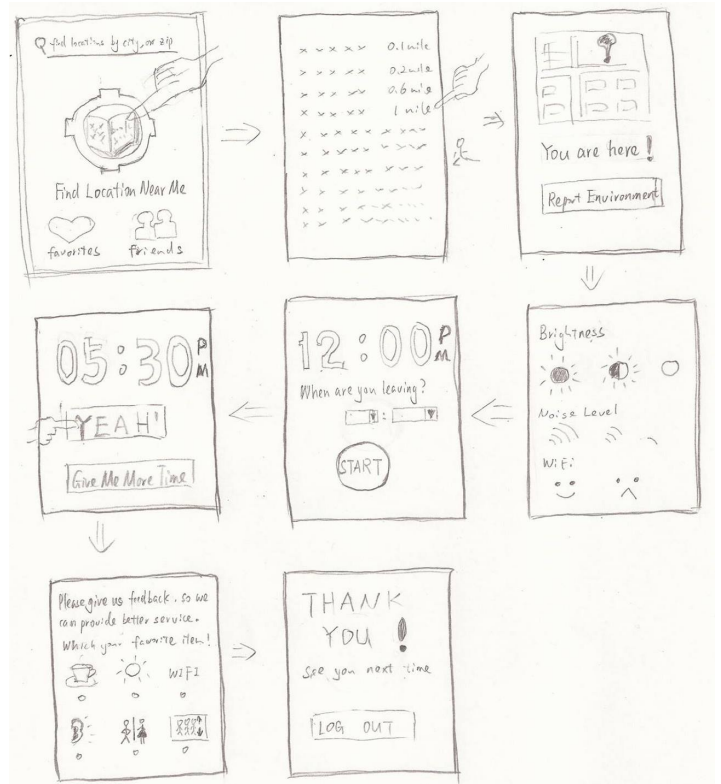 find locations by city, or zip
Find Location Near Me
favorites friends
0.1 mile
0.2 mile
0.6 mile
1 mile
You are here!
Report Environment
Brightness
Noise Level
WiFi
12:00 PM
When are you leaving?
:
START
05:30 PM
YEAH!
Give Me More Time
Please give us feedback. so we
can provide better service.
Which your favorite item!
WIFI
THANK
YOU !
See you next time
LOG OUT